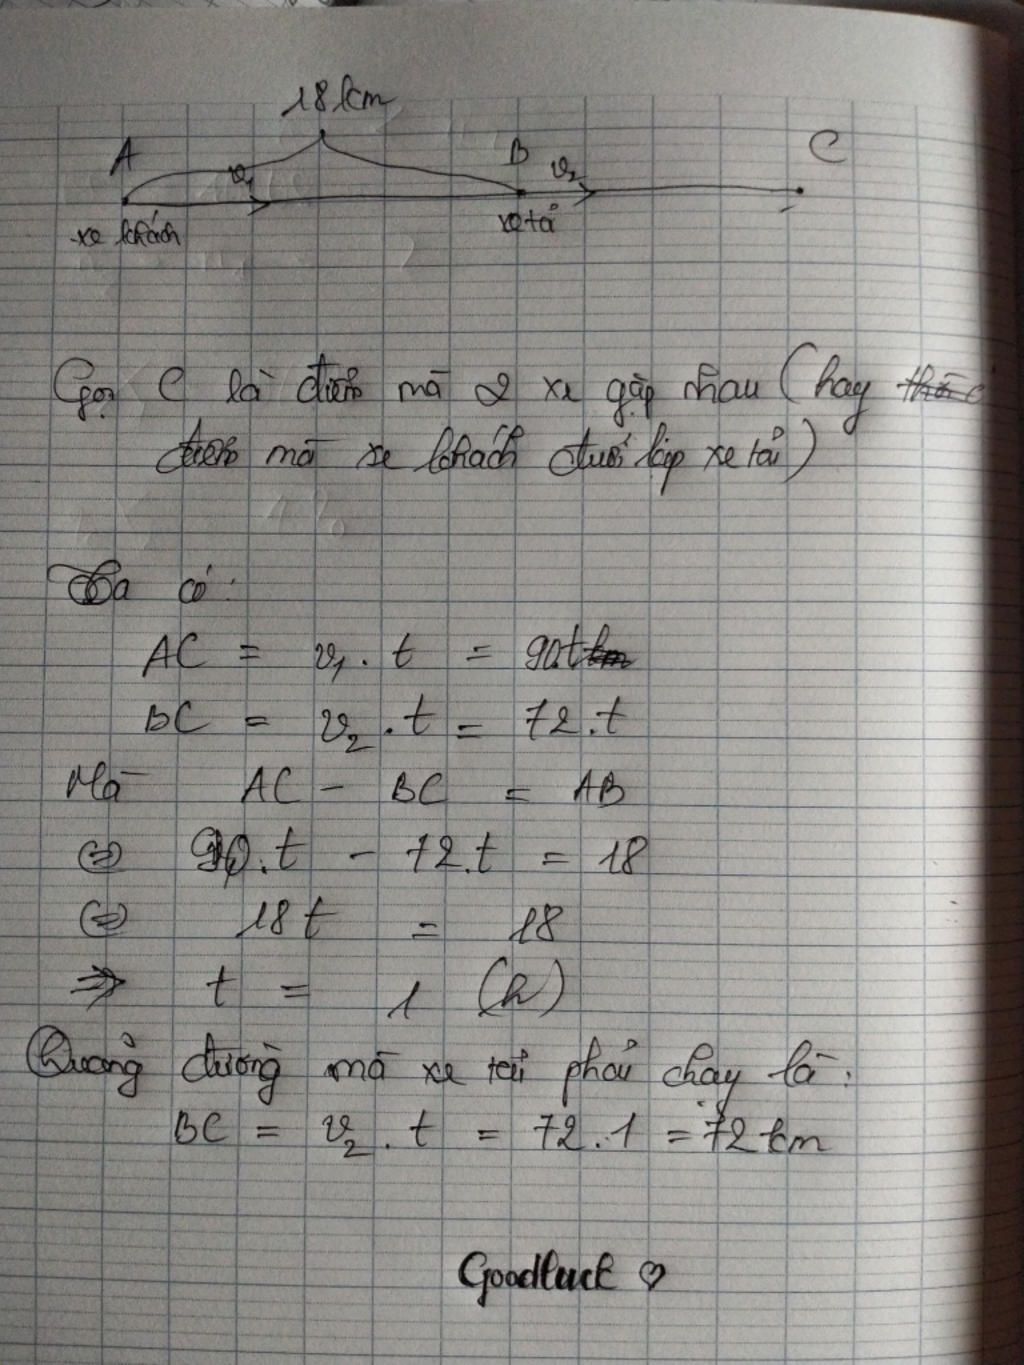 18 km
A B C
v₁ v₂
xe khách xe tải
Gọi C là điểm mà 2 xe gặp nhau (hay
điểm mà xe khách đuổi kịp xe tải)
Ta có:
AC = v₁ . t = 90t
BC = v₂ . t = 72.t
Mà AC - BC = AB
⇔ 90.t - 72.t = 18
⇔ 18t = 18
⇒ t = 1 (h)
Quãng đường mà xe tải phải chạy là:
BC = v₂ . t = 72.1 = 72 km
Goodluck ♡